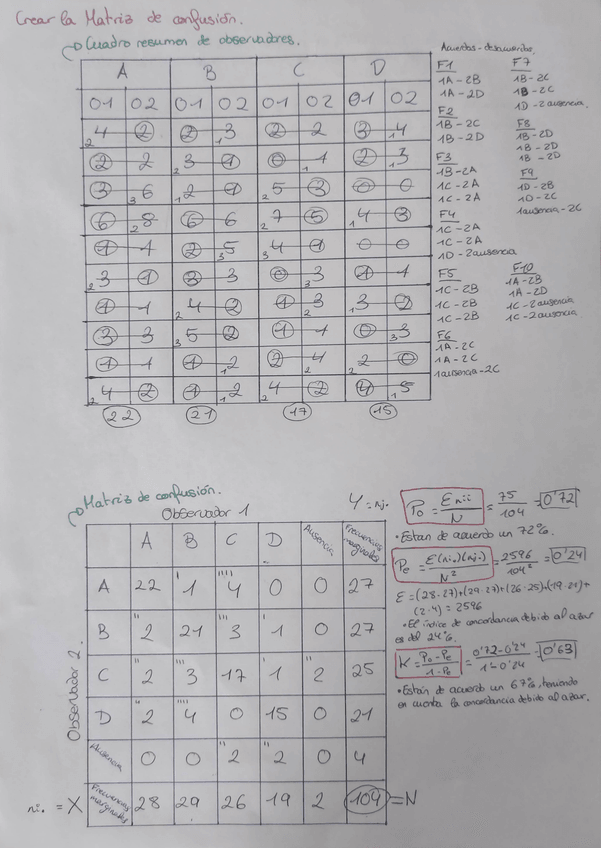 Crear la Matriz de confusión.
Cuadro resumen de observadores.
A B C D
01 02 01 02 01 02 01 02
2 4 2 2 1 3 2 2 3 1 4
2 2 2 3 1 0 1 1 2 1 3
3 3 6 1 2 1 2 5 3 0 0
6 2 8 6 6 2 7 5 1 4 3
1 1 2 3 5 3 4 1 0 0
2 3 1 3 3 0 3 3 1 1
1 1 2 4 2 1 2 3 1 3 2
3 3 3 5 2 1 1 0 3 3
1 1 1 1 2 2 2 4 2 2 0
2 4 2 1 1 2 2 4 2 4 1 5
22 21 17 15
Acuerdos-desacuerdos.
F1
1A-2B
1A-2D
F2
1B-2C
1B-2D
F3
1B-2A
1C-2A
1C-2A
F4
1C-2A
1C-2A
1D-2ausencia
F5
1C-2B
1C-2B
1C-2B
F6
1A-2C
1A-2C
1ausencia-2C
F7
1B-2C
1B-2C
1D-2ausencia.
F8
1B-2D
1B-2D
1B-2D
F9
1D-2B
1D-2C
1ausencia-2C
F10
1A-2B
1A-2D
1C-2ausencia
1C-2ausencia
Matriz de confusión.
Observador 1
Y = nj.
A B C D Ausencia Frecuencias marginales
A 22 1 4 0 0 27
B 2 21 3 1 0 27
C 2 3 17 1 2 25
D 2 4 0 15 0 21
Ausencia 0 0 2 2 0 4
Frecuencias marginales 28 29 26 19 2 104 = N
Observador 2.
ni. = X
Po = Σnii / N = 75 / 104 = 0'72
• Están de acuerdo un 72%.
Pe = Σ(ni.)(nj.) / N² = 2596 / 104² = 0'24
Σ=(28·27)+(29·27)+(26·25)+(19·21)+
(2·4) = 2596
• El índice de concordancia debido al azar
es del 24%.
K = Po-Pe / 1-Pe = 0'72-0'24 / 1-0'24 = 0'63
• Están de acuerdo un 67%, teniendo
en cuenta la concordancia debido al azar.